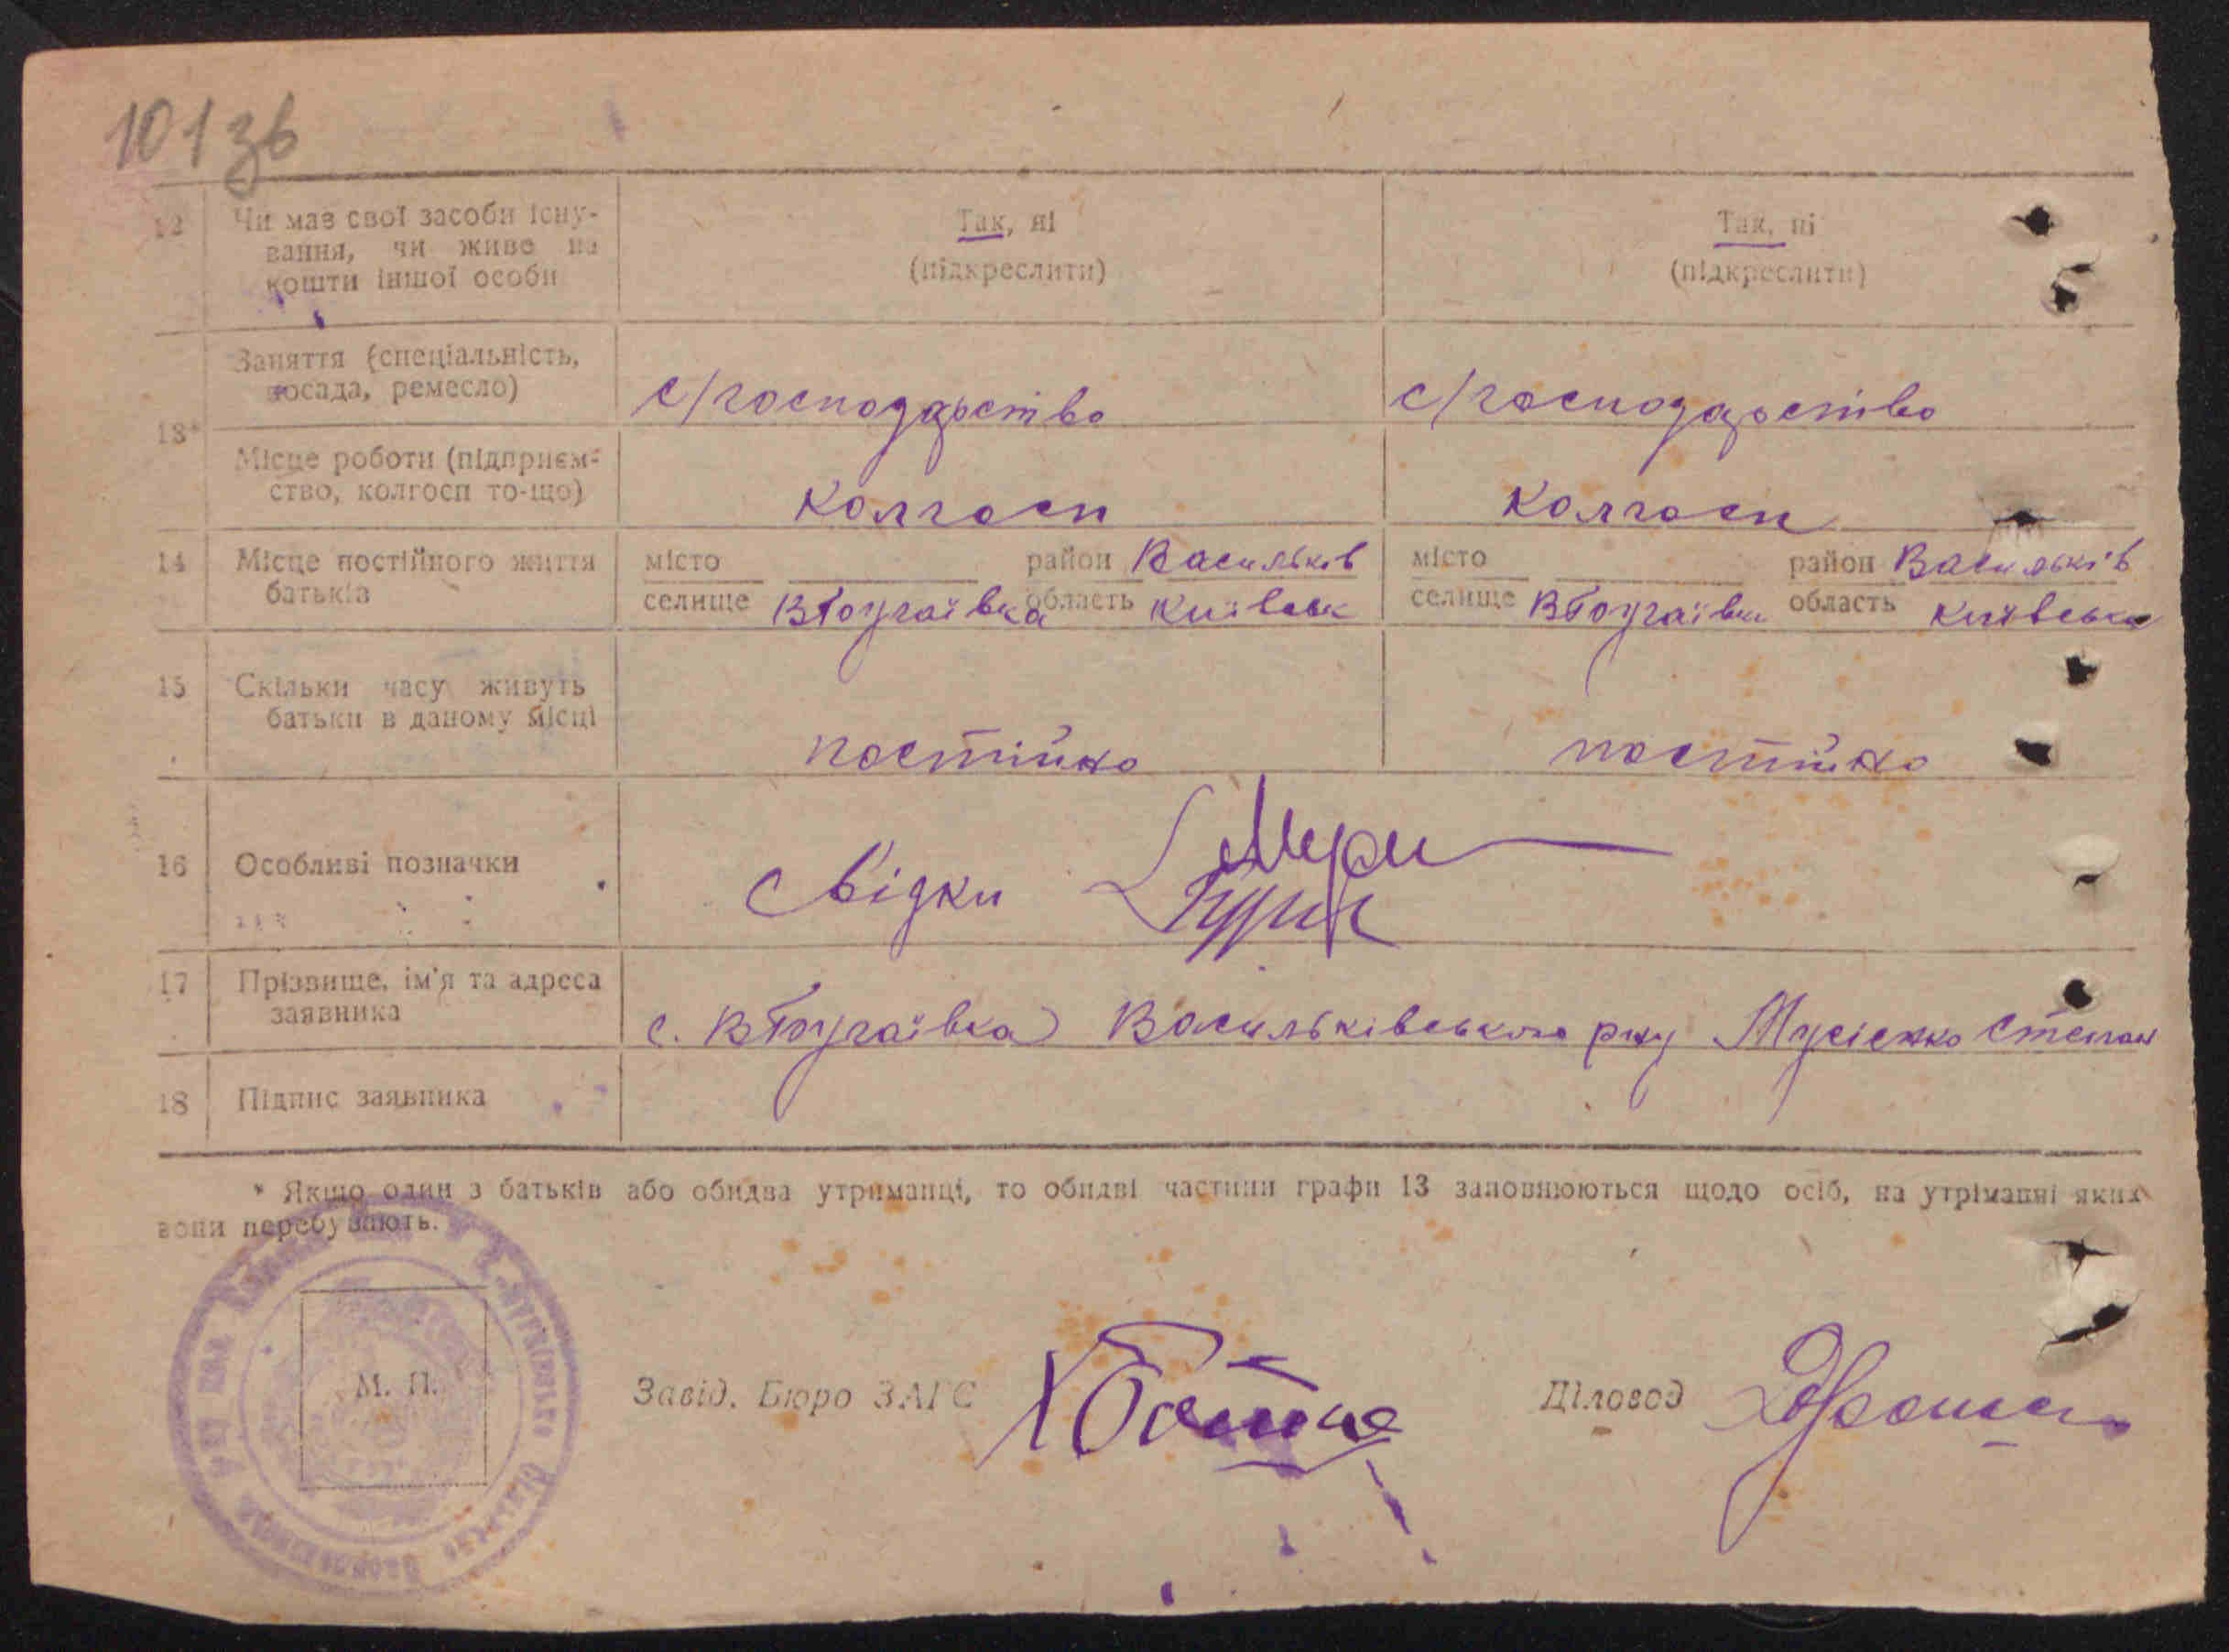 101зв
12 Чи має свої засоби існу-
вання, чи живе на
кошти іншої особи
Так, ні Так, ні
(підкреслити) (підкреслити)
13* Заняття (спеціальність,
посада, ремесло)
с/господарство с/господарство
Місце роботи (підприєм-
ство, колгосп то-що)
Колгосп Колгосп
14 Місце постійного життя
батьків
місто район Васильків місто район Васильків
селище ВБугаївка область Київськ селище ВБугаївка область Київська
15 Скільки часу живуть
батьки в даному місці
постійно постійно
16 Особливі позначки
свідки
17 Прізвище, ім'я та адреса
заявника
с. ВБугаївка Васильківського р-ну Мусієнко Степан
18 Підпис заявника
* Якщо один з батьків або обидва утриманці, то обидві частини графи 13 заповнюються щодо осіб, на утріманні яких
вони перебувають.
М. П.
Завід. Бюро ЗАГС
Діловод